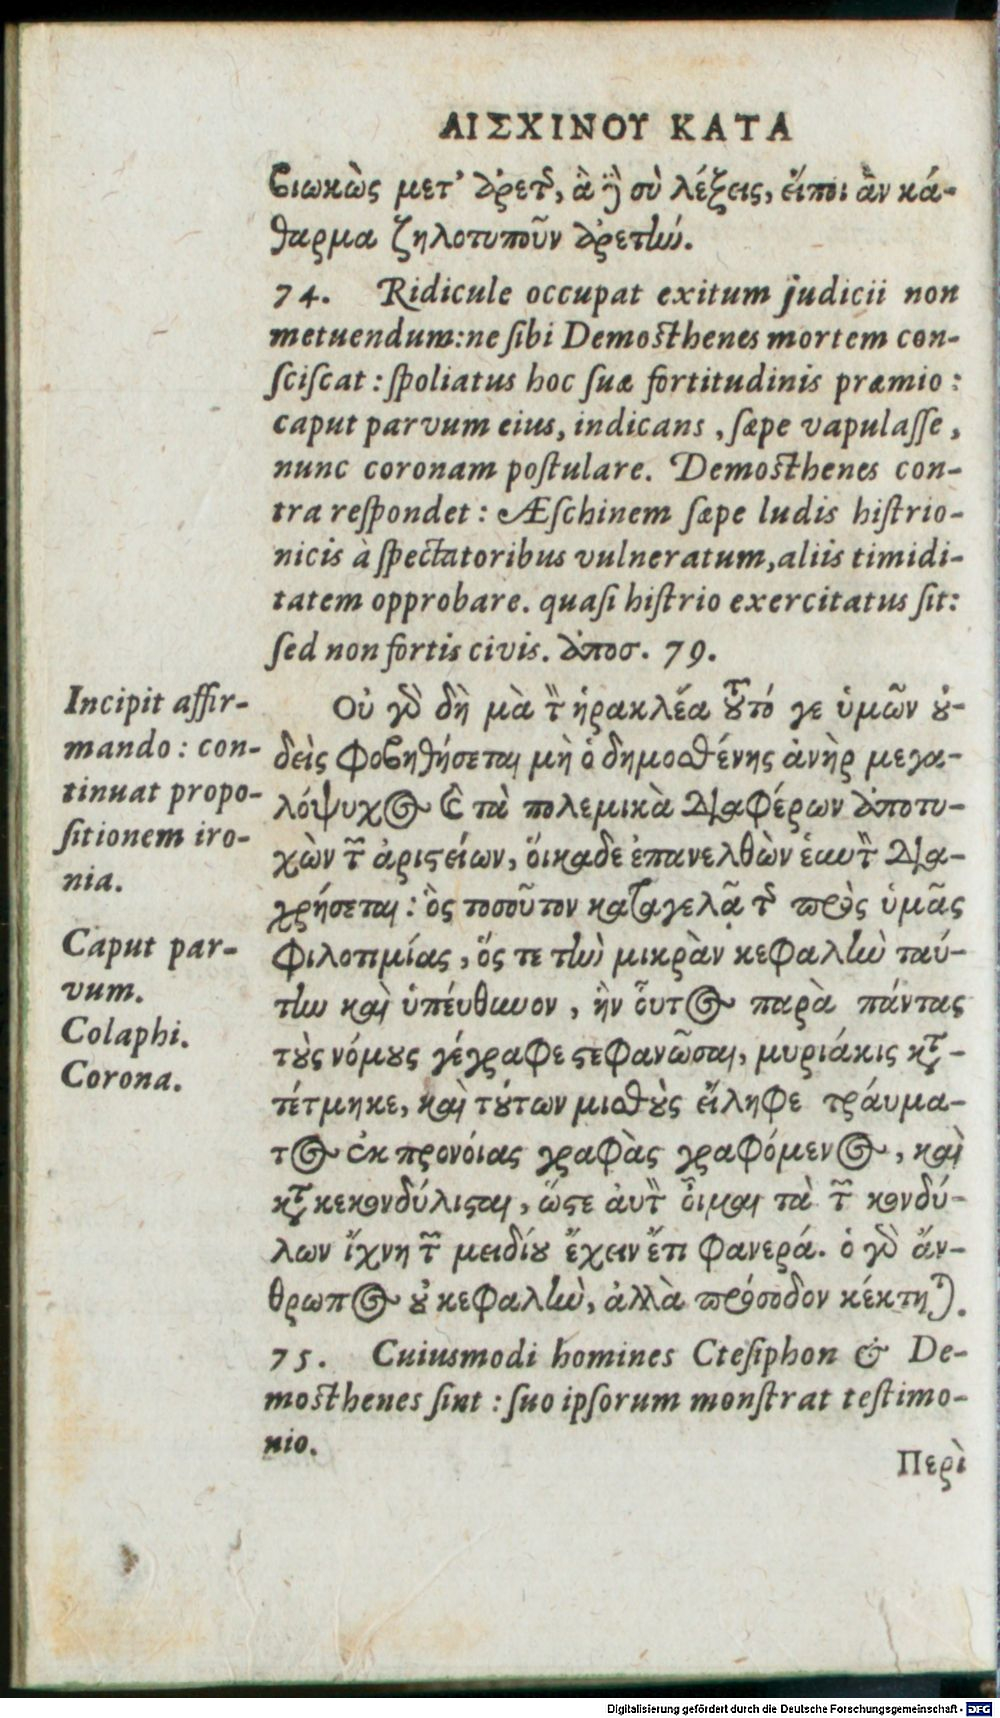 ΑΙΣΧΙΝΟΥ ΚΑΤΑ
βιωκὼς μετ' ἀρετῆς, ἃ ἢ σὺ λέξεις, εἴποι ἂν κά-
θαρμα ζηλοτυποῦν ἀρετήν.
74. Ridicule occupat exitum judicii non
metuendum: ne sibi Demosthenes mortem con-
sciscat: spoliatus hoc suæ fortitudinis præmio:
caput parvum eius, indicans, sæpe vapulasse,
nunc coronam postulare. Demosthenes con-
tra respondet: Æschinem sæpe ludis histrio-
nicis à spectatoribus vulneratum, aliis timidi-
tatem opprobare. quasi histrio exercitatus sit:
sed non fortis civis. ἀποσ. 79.
Incipit affir-
mando: con-
tinuat propo-
sitionem iro-
nia.
Caput par-
vum.
Colaphi.
Corona.
Οὐ γὰρ δὴ μὰ τὸν ἡρακλέα τοῦτό γε ὑμῶν οὐ-
δεὶς φοβηθήσεται μὴ ὁ δημοσθένης ἀνὴρ μεγα-
λόψυχος καὶ τὰ πολεμικὰ διαφέρων ἀποτυ-
χὼν τῶν ἀριστείων, οἴκαδε ἐπανελθὼν ἑαυτὸν δια-
χρήσεται: ὃς τοσοῦτον καταγελᾷ τῆς πρὸς ὑμᾶς
φιλοτιμίας, ὅς τε τὴν μικρὰν κεφαλὴν ταύ-
την καὶ ὑπεύθυνον, ἣν οὗτος παρὰ πάντας
τοὺς νόμους γέγραφε στεφανῶσαι, μυριάκις κατα-
τέτμηκε, καὶ τούτων μισθοὺς εἴληφε τραύμα-
τος ἐκ προνοίας γραφὰς γραφόμενος, καὶ
κατακεκονδύλισται, ὥστε αὐτὸν οἶμαι τὰ τῶν κονδύ-
λων ἴχνη τῶν μειδίου ἔχειν ἔτι φανερά. ὁ γὰρ ἄν-
θρωπος οὐ κεφαλὴν, ἀλλὰ πρόσοδον κέκτηται.
75. Cuiusmodi homines Ctesiphon & De-
mosthenes sint: suo ipsorum monstrat testimo-
nio.
Περὶ
Digitalisierung gefördert durch die Deutsche Forschungsgemeinschaft - DFG